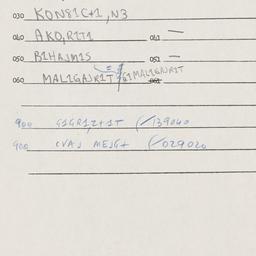 030 KON81C+1, N3
040 AKO, R1T1 041 —
050 B1HAJM1S 051 —
060 MAL1GAJR1T G1MAL1GAJR1T 061
900 G1GR1,Z+1T (/139040
900 CVAJ MEJG+ (/029020